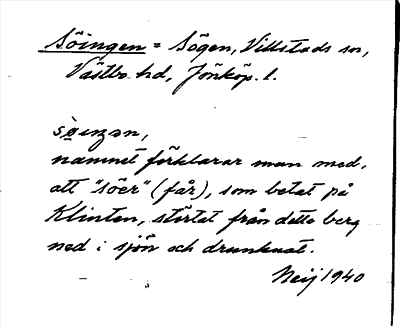 Söingen = Sögen, Villstads sn,
Västbo hd, Jönköp. l.
namnet förklarar man med,
att "söer" (får), som betat på
Klinten, störtat från detta berg
ned i sjön och drunknat.
Neij 1940